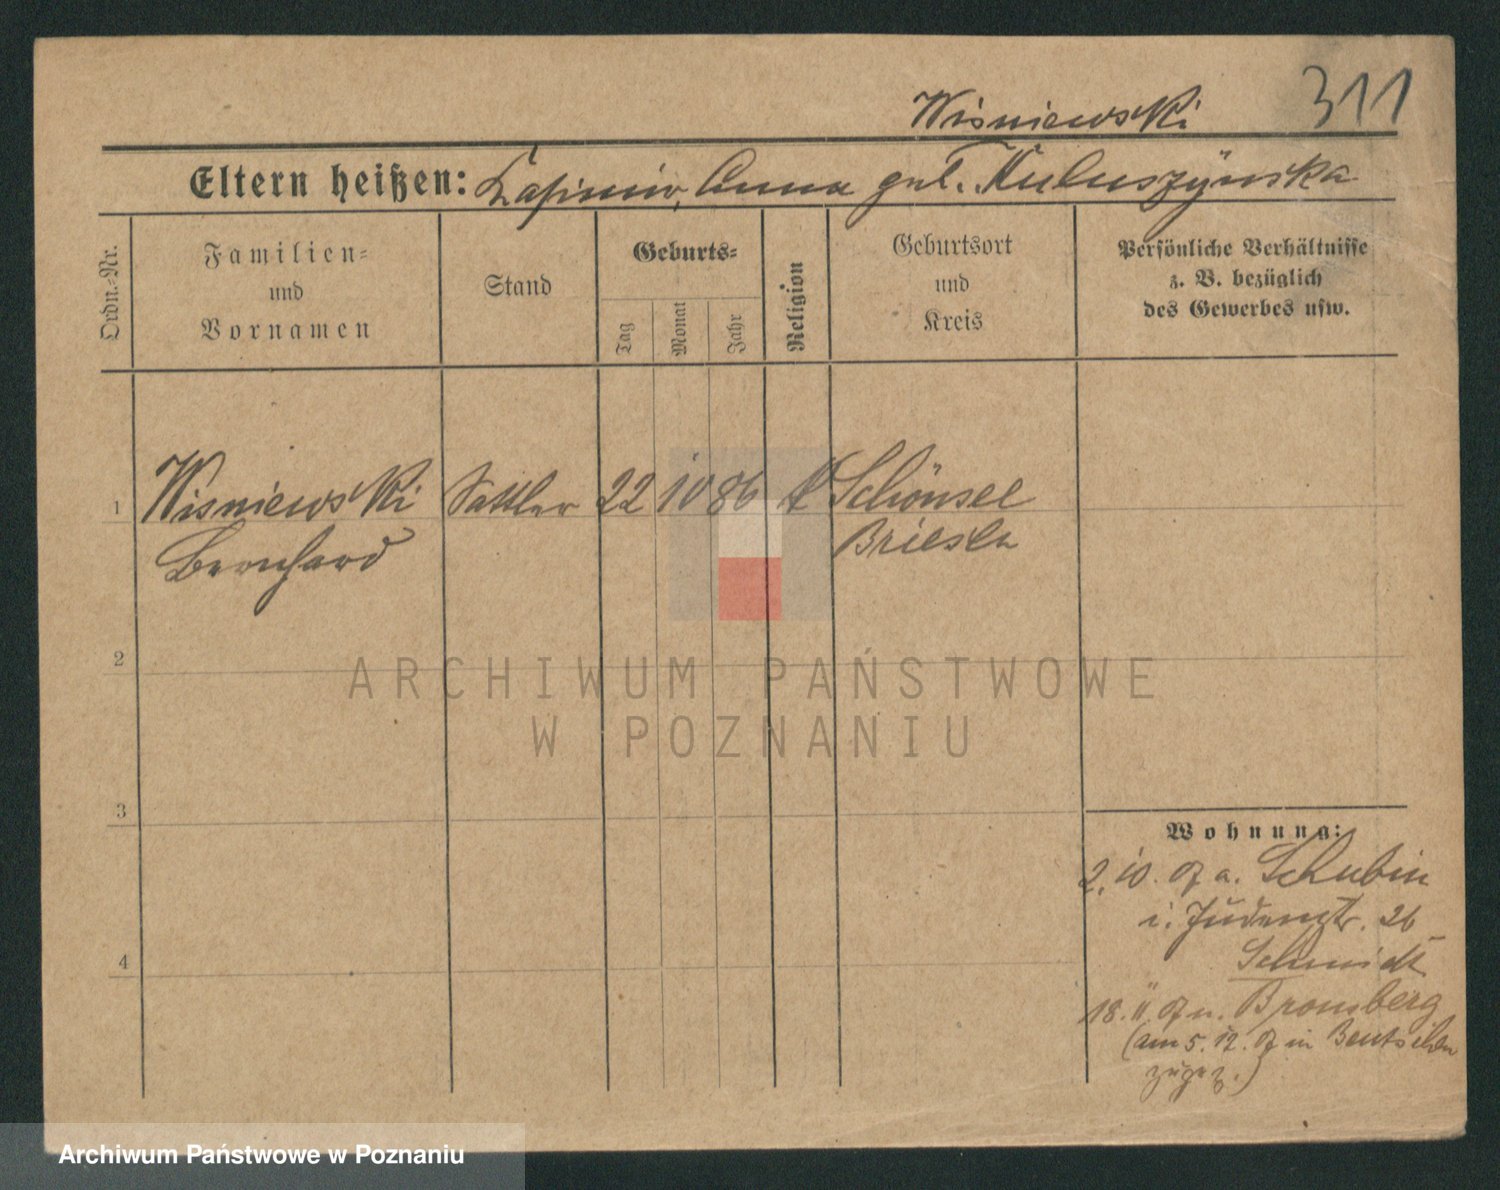 311
Wisniewski
Eltern heißen: Kasimir, Anna geb. Kuluszynska
Ordn.-Nr.
Familien-
und
Vornamen
Stand
Geburts-
Tag
Monat
Jahr
Religion
Geburtsort
und
Kreis
Persönliche Verhältnisse
z. B. bezüglich
des Gewerbes usw.
1 Wisniewski Sattler 22 10 86 k Schönsee
Bernhard Briesen
2
3
4
Wohnung:
2. 10. 07 a. Schubin
i. Judenstr. 26
Schmidt
18. 11. 07 n. Bromberg
(am 5. 12. 07 in Bentschen
zugez.)
ARCHIWUM PAŃSTWOWE
W POZNANIU
Archiwum Państwowe w Poznaniu